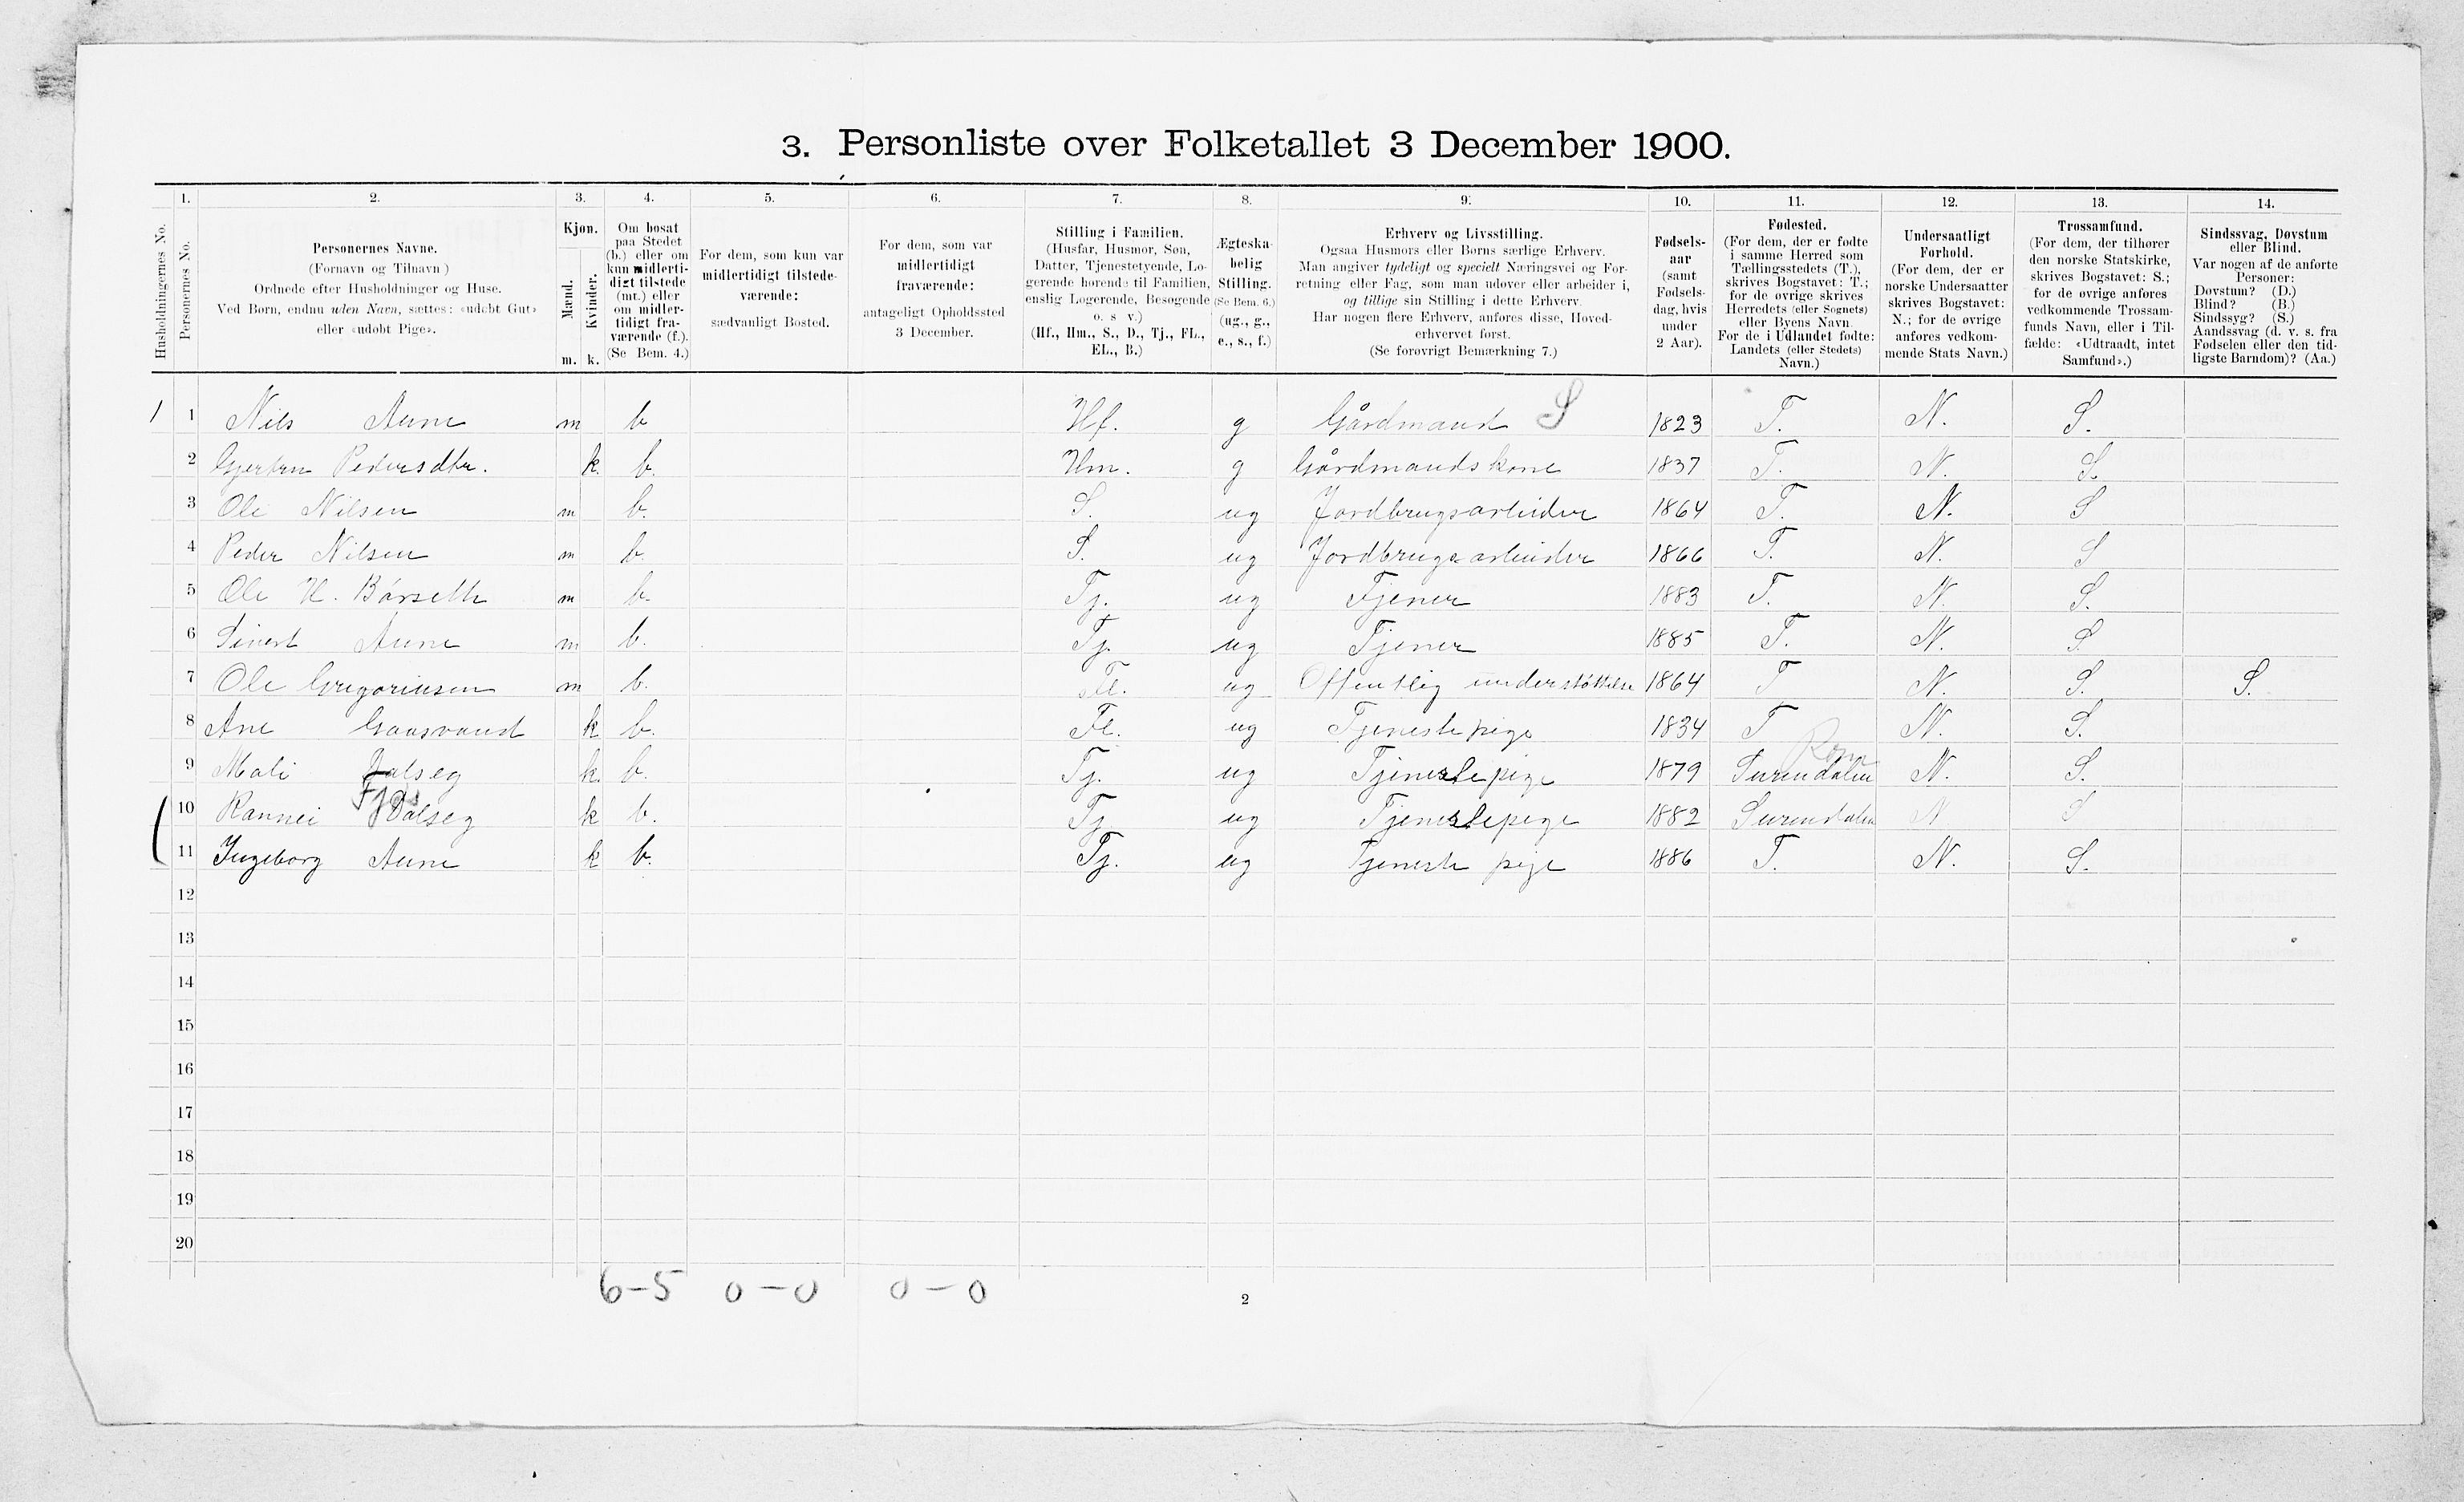 3. Personliste over Folketallet 3 December 1900.
1. 2. 3. 4. 5. 6. 7. 8. 9. 10. 11. 12. 13. 14.
Husholdningernes No.
Personernes No.
Personernes Navne.
(Fornavn og Tilnavn)
Ordnede efter Husholdninger og Huse.
Ved Børn, endnu uden Navn, sættes: «udøbt Gut»
eller «udøbt Pige».
Kjøn.
Mænd.
Kvinder.
m. k.
Om bosat
paa Stedet
(b.) eller om
kun midlerti-
digt tilstede
(mt.) eller
om midler-
tidigt fra-
værende (f.).
(Se Bem. 4.)
For dem, som kun var
midlertidigt tilstede-
værende:
sædvanligt Bosted.
For dem, som var
midlertidigt
fraværende:
antageligt Opholdssted
3 December.
Stilling i Familien.
(Husfar, Husmor, Søn,
Datter, Tjenestetyende, Lo-
gerende hørende til Familien,
enslig Logerende, Besøgende
o. s v.)
(Hf., Hm., S., D., Tj., FL.,
EL., B.)
Ægteska-
belig
Stilling.
(Se Bem. 6.)
(ug., g.,
e., s., f.)
Erhverv og Livsstilling.
Ogsaa Husmors eller Børns særlige Erhverv.
Man angiver tydeligt og specielt Næringsvei og For-
retning eller Fag, som man udøver eller arbeider i,
og tillige sin Stilling i dette Erhverv.
Har nogen flere Erhverv, anføres disse, Hoved-
erhvervet først.
(Se forøvrigt Bemærkning 7.)
Fødsels-
aar
(samt
Fødsels-
dag, hvis
under
2 Aar).
Fødested.
(For dem, der er fødte
i samme Herred som
Tællingsstedets (T.),
skrives Bogstavet: T.;
for de øvrige skrives
Herredets (eller Sognets)
eller Byens Navn.
For de i Udlandet fødte:
Landets (eller Stedets)
Navn.)
Undersaatligt
Forhold.
(For dem, der er
norske Undersaatter
skrives Bogstavet:
N.; for de øvrige
anføres vedkom-
mende Stats Navn.)
Trossamfund.
(For dem, der tilhører
den norske Statskirke,
skrives Bogstavet: S.;
for de øvrige anføres
vedkommende Trossam-
funds Navn, eller i Til-
fælde: «Udtraadt, intet
Samfund».)
Sindssvag, Døvstum
eller Blind.
Var nogen af de anførte
Personer:
Døvstum? (D.)
Blind? (B.)
Sindssyg? (S.)
Aandssvag (d. v. s. fra
Fødselen eller den tid-
ligste Barndom)? (Aa.)
1 1 Nils Aune m b Hf. g Gårdmand S 1823 T. N. S.
2 Gjertru Pedersdtr. k. b. Hm. g Gårdmandskone 1837 T. N. S.
3 Ole Nilsen m b. S. ug Jordbrugsarbeider 1864 T. N. S
4 Peder Nilsen m b. S. ug Jordbrugsarbeider 1866 T. N. S
5 Ole H. Bårseth m b. Tj. ug Tjener 1883 T. N. S.
6 Sivert Aune m b. Tj. ug Tjener 1885 T. N. S.
7 Ole Gregoriusen m b. Fl. ug Offentlig understöttelse 1864 T N. S. S.
8 Ane Gaasvand k b. Fl. ug Tjenestepige 1834 T N. S.
9 Mali Dalseg k. b. Tj. ug Tjenestepige 1879 Surendalen N. S.
10 Rannei Dalseg k b. Tj ug Tjenestepige 1882 Surendalen N S
11 Ingeborg Aune k b. Tj. ug Tjeneste pige 1886 T. N. S.
12
13
14
15
16
17
18
19
20
6-5 0-0 0-0
2